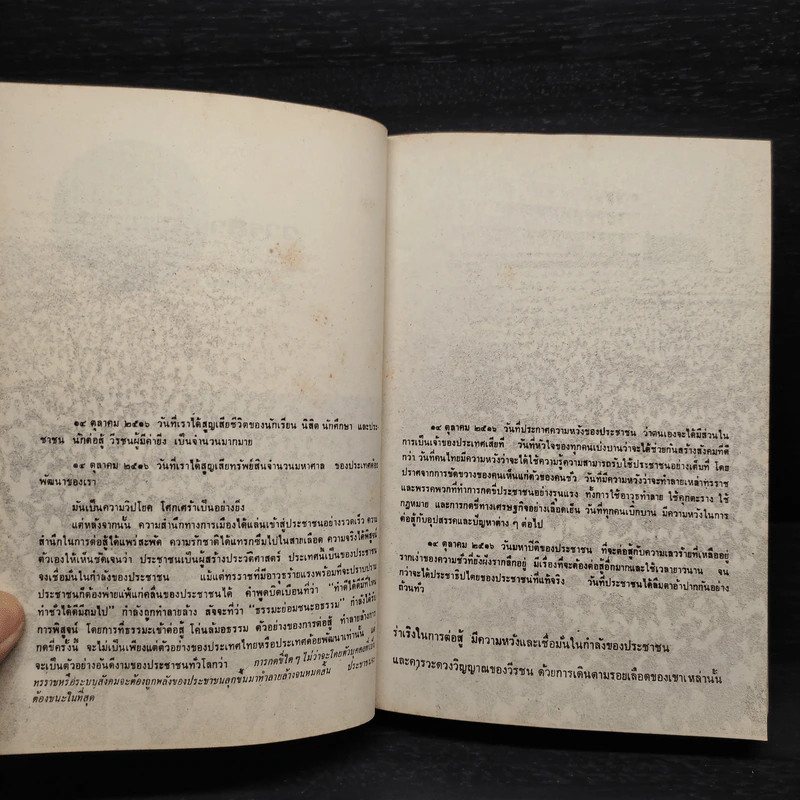 ๑๔ ตุลาคม ๒๕๑๖ วันที่เราได้สูญเสียชีวิตของนักเรียน นิสิต นักศึกษา และประ
ชาชน นักต่อสู้ วีรชนผู้มีค่ายิ่ง เป็นจำนวนมากมาย
๑๔ ตุลาคม ๒๕๑๖ วันที่เราได้สูญเสียทรัพย์สินจำนวนมหาศาล ของประเทศด้อย
พัฒนาของเรา
มันเป็นความวิปโยค โศกเศร้าเป็นอย่างยิ่ง
แต่หลังจากนั้น ความสำนึกทางการเมืองได้แล่นเข้าสู่ประชาชนอย่างรวดเร็ว ความ
สำนึกในการต่อสู้ได้แพร่สะพัด ความรักชาติได้แทรกซึมไปในสายเลือด ความจริงได้พิสูจน์
ตัวเองให้เห็นชัดเจนว่า ประชาชนเป็นผู้สร้างประวัติศาสตร์ ประเทศนี้เป็นของประชาชน
จงเชื่อมั่นในกำลังของประชาชน แม้แต่ทรราชที่มีอาวุธร้ายแรงพร้อมที่จะปราบปราม
ประชาชนก็ต้องพ่ายแพ้แก่คลื่นของประชาชนได้ คำพูดบิดเบือนที่ว่า "ทำดีได้ดีมีที่ไหน
ทำชั่วได้ดีมีถมไป" กำลังถูกทำลายล้าง สัจจะที่ว่า "ธรรมะย่อมชนะอธรรม" กำลังได้รับ
การพิสูจน์ โดยการที่ธรรมะเข้าต่อสู้ โค่นล้มอธรรม ตัวอย่างของการต่อสู้ ทำลายล้างการ
กดขี่ครั้งนี้ จะไม่เป็นเพียงแต่ตัวอย่างของประเทศไทยหรือประเทศด้อยพัฒนาเท่านั้น แต่
จะเป็นตัวอย่างอันดีงามของประชาชนทั่วโลกว่า การกดขี่ใด ๆ ไม่ว่าจะโดยตัวบุคคล
ทรราชหรือระบบสังคมจะต้องถูกพลังของประชาชนลุกขึ้นมาทำลายล้างจนหมดสิ้น ประชาชน
ต้องชนะในที่สุด
๑๔ ตุลาคม ๒๕๑๖ วันที่ประกาศความหวังของประชาชน ว่าตนเองจะได้มีส่วนใน
การเป็นเจ้าของประเทศเสียที วันที่หัวใจของทุกคนเบ่งบานว่าจะได้ช่วยกันสร้างสังคมที่ดี
กว่า วันที่คนไทยมีความหวังว่าจะได้ใช้ความรู้ความสามารถรับใช้ประชาชนอย่างเต็มที่ โดย
ปราศจากการขัดขวางของคนเห็นแก่ตัวของคนชั่ว วันที่มีความหวังว่าจะทำลายเหล่าทรราช
และพรรคพวกที่ทำการกดขี่ประชาชนอย่างรุนแรง ทั้งการใช้อาวุธทำลาย ใช้คุกตะราง ใช้
กฎหมาย และการกดขี่ทางเศรษฐกิจอย่างเลือดเย็น วันที่ทุกคนเบิกบาน มีความหวังในการ
ต่อสู้กับอุปสรรคและปัญหาต่าง ๆ ต่อไป
๑๔ ตุลาคม ๒๕๑๖ วันมหาปิติของประชาชน ที่จะต่อสู้กับความเลวร้ายที่เหลืออยู่
รากเง่าของความชั่วที่ยังฝังรากลึกอยู่ มีเรื่องที่จะต้องต่อสู้อีกมากและใช้เวลายาวนาน จน
กว่าจะได้ประชาธิปไตยของประชาชนที่แท้จริง วันที่ประชาชนได้ลืมตาอ้าปากกันอย่าง
ถ้วนทั่ว
ร่าเริงในการต่อสู้ มีความหวังและเชื่อมั่นในกำลังของประชาชน
และคารวะดวงวิญญาณของวีรชน ด้วยการเดินตามรอยเลือดของเขาเหล่านั้น